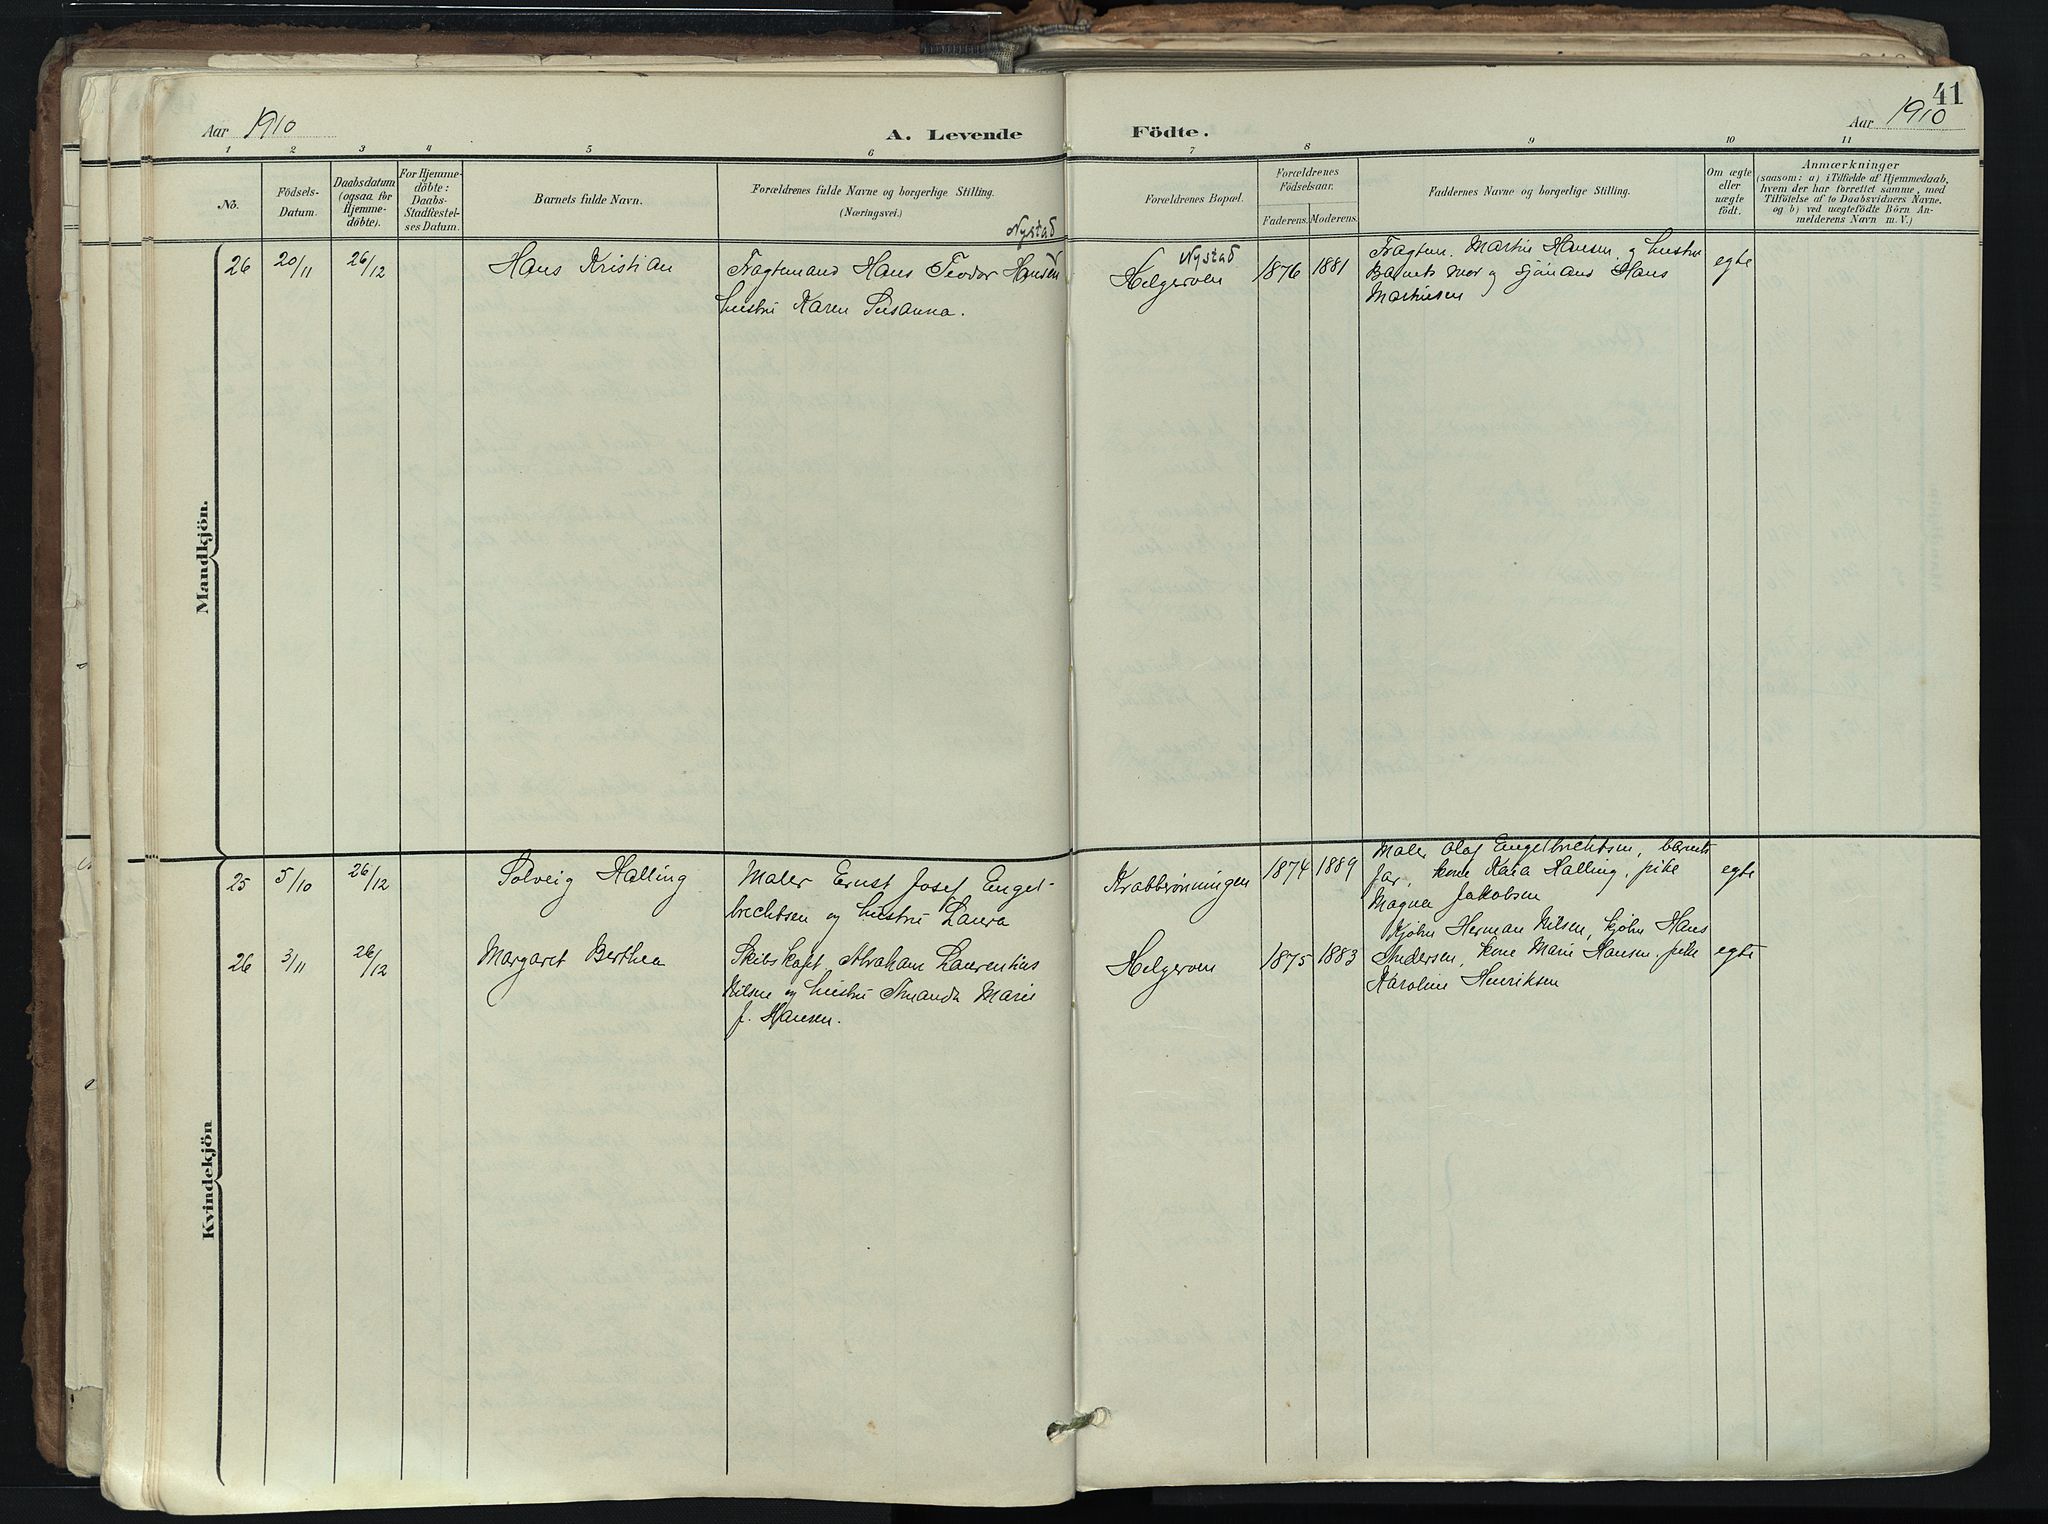 Aar 1910
A. Levende
Födte.
Aar 1910
41
1 2 3 4 5 6 7 8 9 10 11
No.
Födsels-
Datum.
Daabsdatum
(ogsaa for
Hjemme-
döbte).
For Hjemme-
döbte:
Daabs-
Stadfæstel-
ses Datum.
Barnets fulde Navn.
Forældrenes fulde Navne og borgerlige Stilling.
(Næringsvei.)
Forældrenes Bopæl.
Forældrenes
Födselsaar.
Faderens. Moderens.
Faddernes Navne og borgerlige Stilling.
Om ægte
eller
uægte
født.
Anmærkninger
(saasom: a) i Tilfælde af Hjemmedaab,
hvem der har forrettet samme, med
Tilföielse af to Daabsvidners Navne.
og b) ved uægtefödte Börn An-
melderens Navn m. V.)
Mandkjön.
26 20/11 26/12 Hans Kristian
Nystad
Fragtemand Hans Teodor Hansen
hustru Karen Susanna.
Nystad
Helgeroen
1876 1881
Fragtem. Martin Hansen og hustru
Barnets mor og sjömand Hans
Martinsen
egte
Kvindekjön
25 5/10 26/12 Solveig Halling
Maler Ernst Josef Engel-
brechtsen og hustru Laura
Krabbrönningen
1874 1889
Maler Olaf Engelbrechtsen, barnets
far, kone Kaia Halling, pike
Magna Jakobsen
egte
26 3/11 26/12 Margaret Berthea
Skibskapt. Abraham Laurentius
Nilsen og hustru Amanda Marie
f. Hansen.
Helgeroen
1875 1883
Herman Nilsen, Hans
Andersen, kone Marie Hansen, pike
Karoline Henriksen
egte